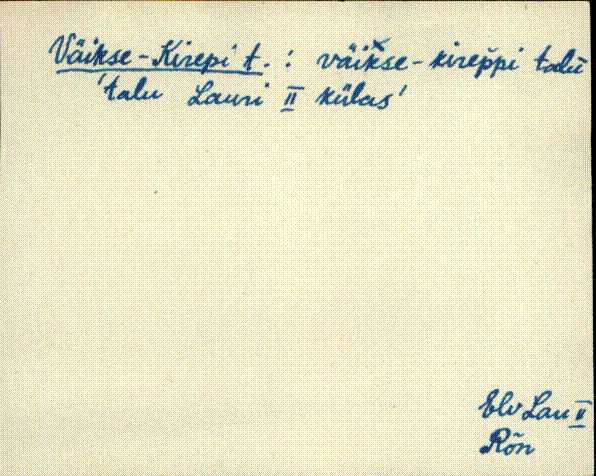 Väikse-Kirepi t. : väikse-kireppi talu
'talu Lauri II külas'
Elv Lau II
Rõn